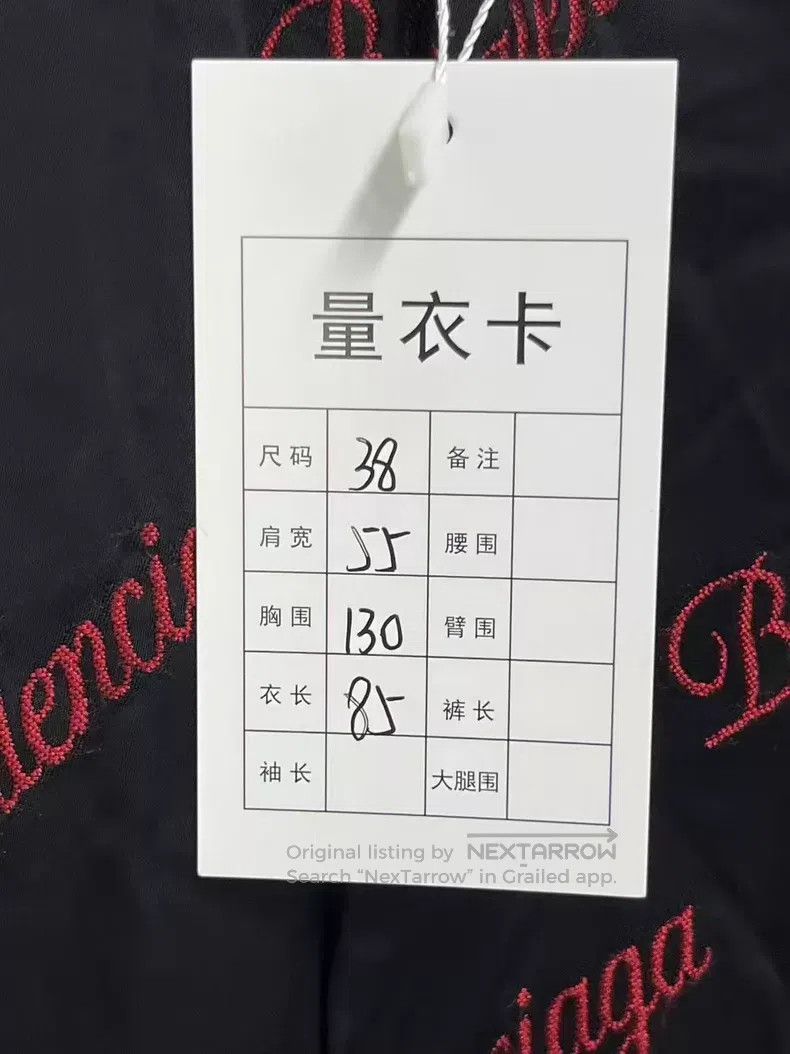 量衣卡
尺码 38 备注
肩宽 55 腰围
胸围 130 臂围
衣长 85 裤长
袖长 大腿围
Original listing by NEXTARROW
Search “NexTarrow” in Grailed app.
lencia
B
iaga